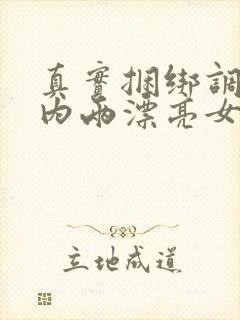 真實捆绑調
内兩漂亮女
立地成道